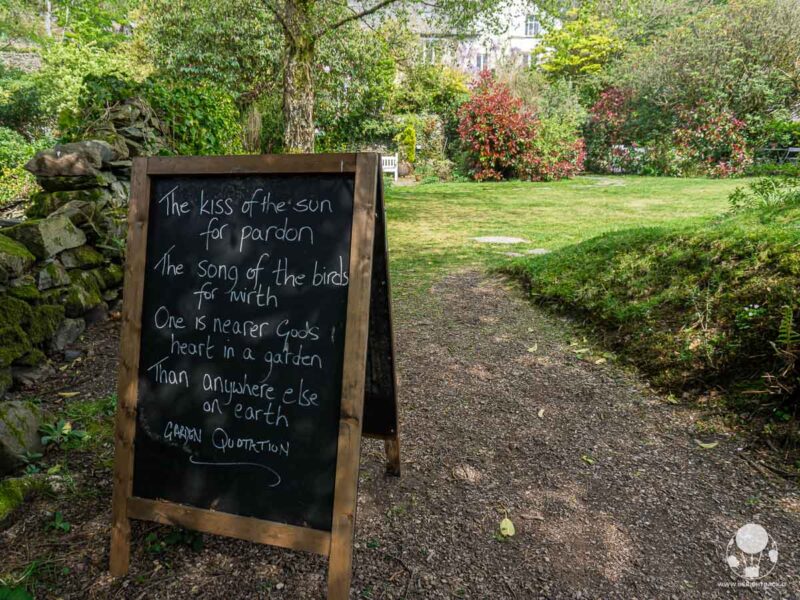 The kiss of the sun
for pardon
The song of the birds
for mirth
One is nearer Gods
heart in a garden
Than anywhere else
on earth
GARDEN QUOTATION